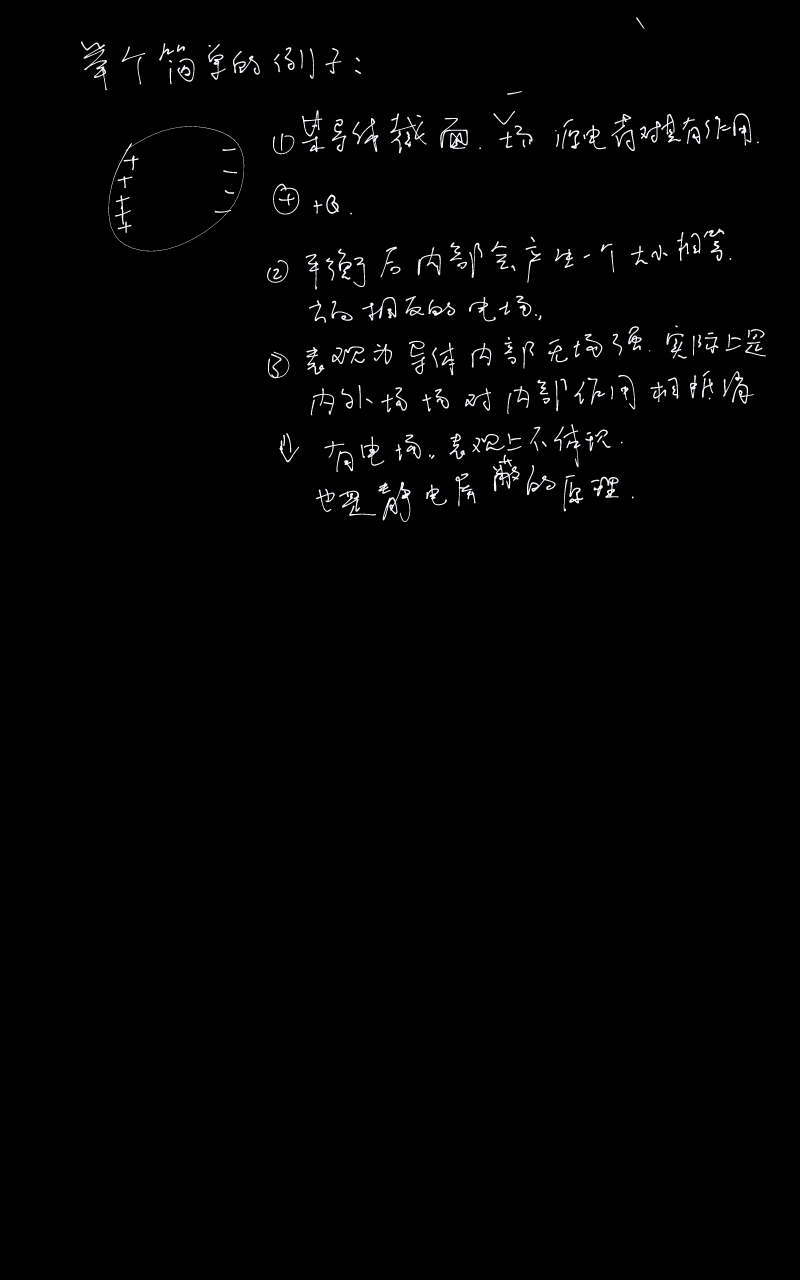 举个简单的例子：
①某导体截面.场源电荷对其有作用.
+ + + + +
− − − −
⊕ +Q.
②平衡后内部会产生一个大小相等.
方向相反的电场.
③表观为导体内部无场强.实际上是
内外场场对内部作用相抵消
⇓ 有电场。表观上不体现.
也是静电屏蔽的原理.